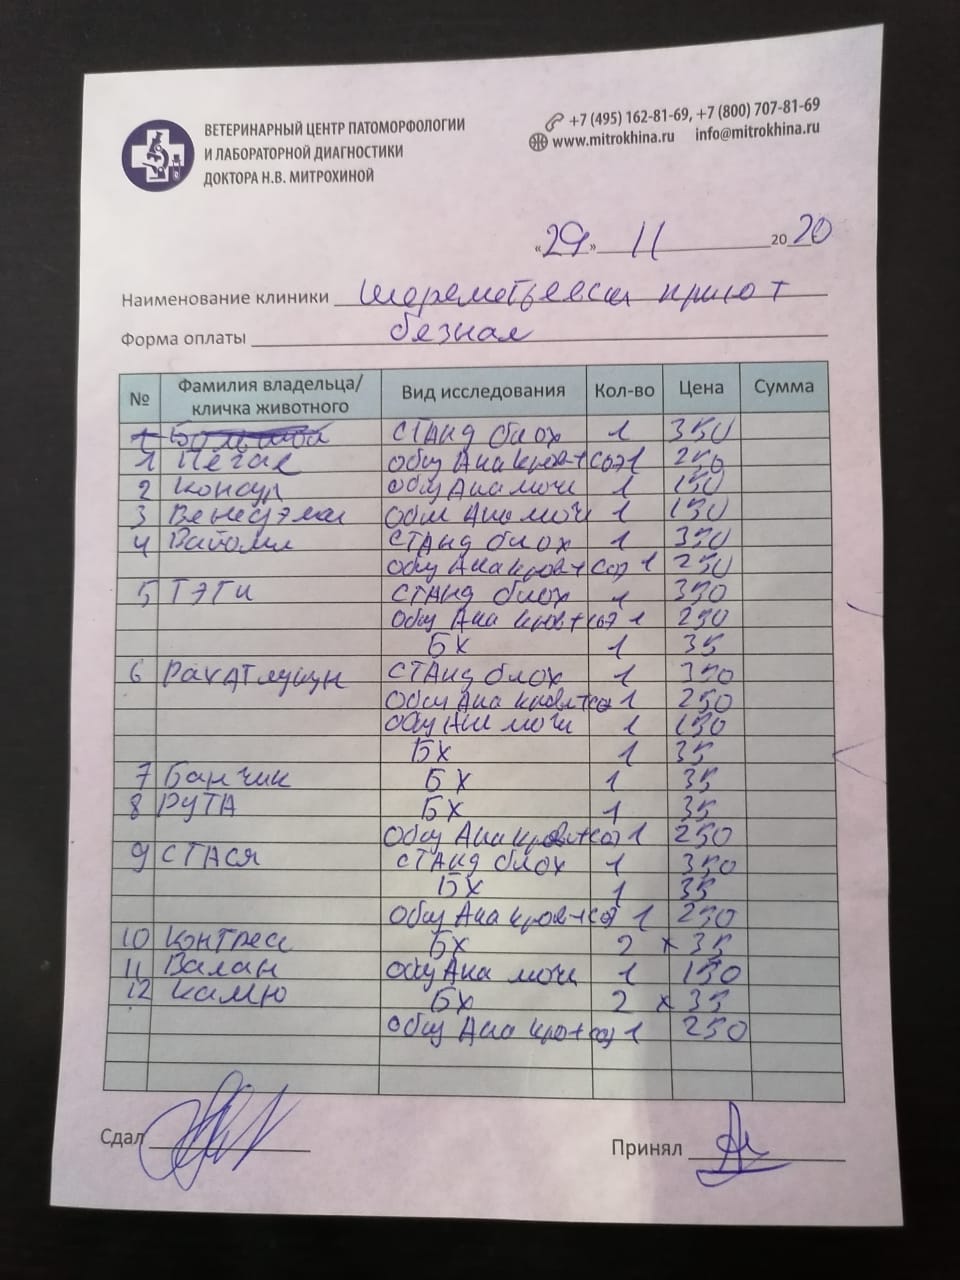 ВЕТЕРИНАРНЫЙ ЦЕНТР ПАТОМОРФОЛОГИИ
И ЛАБОРАТОРНОЙ ДИАГНОСТИКИ
ДОКТОРА Н.В. МИТРОХИНОЙ
+7 (495) 162-81-69, +7 (800) 707-81-69
www.mitrokhina.ru info@mitrokhina.ru
«29» 11 2020
Наименование клиники приют
Форма оплаты безнал
№ Фамилия владельца/ кличка животного Вид исследования Кол-во Цена Сумма
1 СТАНД биох 1 350
1 Пегас общ Ана кров+СОЭ 1 250
2 Консул общ Ана мочи 1 150
3 общ Ана мочи 1 150
4 СТАНД биох 1 350
общ Ана кров+СОЭ 1 250
5 ТЭГИ СТАНД биох 1 350
общ Ана кров+СОЭ 1 250
БХ 1 35
6 Рахатлукум СТАНД биох 1 350
общ Ана кров+СОЭ 1 250
общ Ана мочи 1 150
БХ 1 35
7 Банчик БХ 1 35
8 РУТА БХ 1 35
общ Ана кров+СОЭ 1 250
9 СТАСЯ СТАНД биох 1 350
БХ 1 35
общ Ана кров+СОЭ 1 250
10 Конгресс БХ 2 х 35
11 Валан общ Ана мочи 1 150
12 Камю БХ 2 х 35
общ Ана кро+соэ 1 250
Сдал Принял